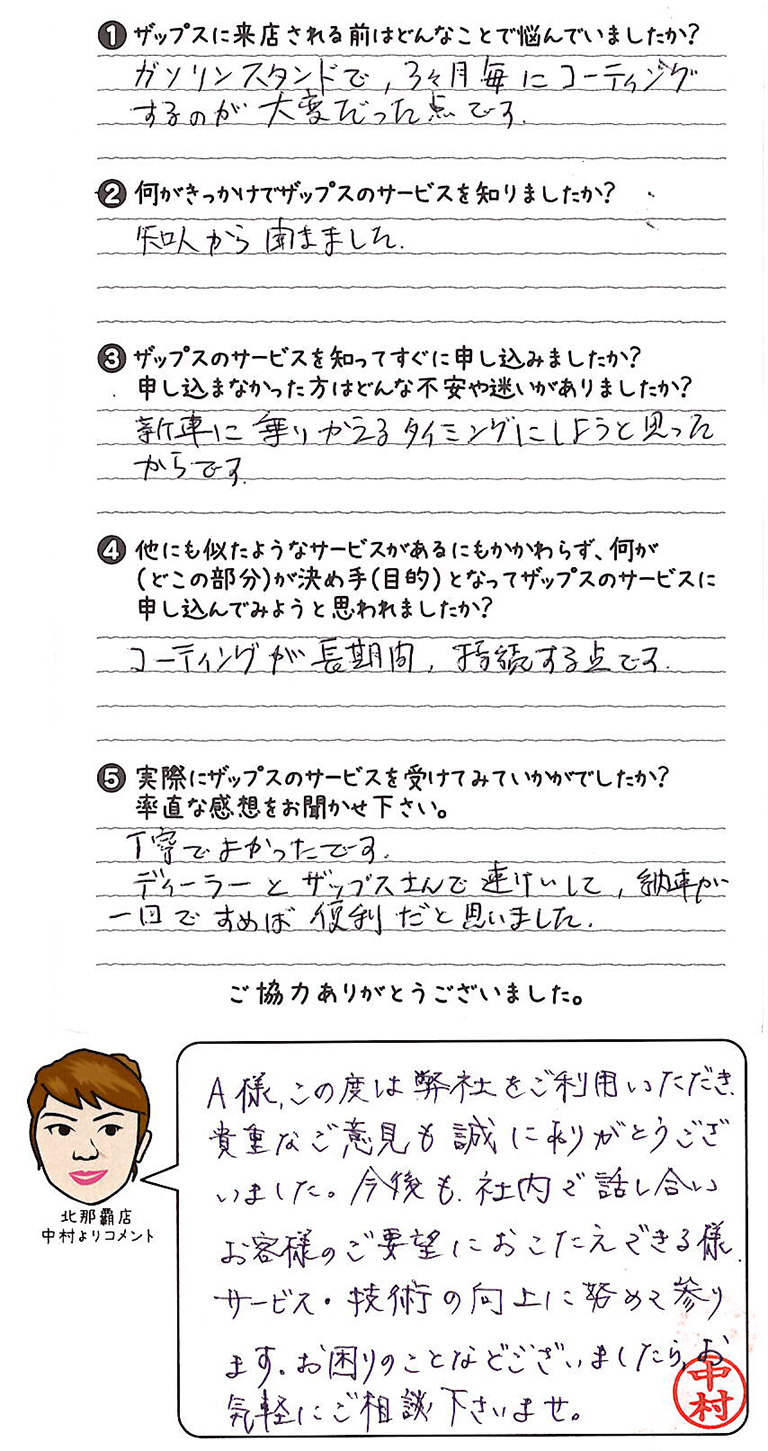 ❶ザップスに来店される前はどんなことで悩んでいましたか?
ガソリンスタンドで,3ヶ月毎にコーティング
するのが大変だった点です.
❷何がきっかけでザップスのサービスを知りましたか?
知人から聞きました.
❸ザップスのサービスを知ってすぐに申し込みましたか?
申し込まなかった方はどんな不安や迷いがありましたか?
新車に乗りかえるタイミングにしようと思った
からです.
❹他にも似たようなサービスがあるにもかかわらず、何が
(どこの部分)が決め手(目的)となってザップスのサービスに
申し込んでみようと思われましたか?
コーティングが長期間,持続する点です.
❺実際にザップスのサービスを受けてみていかがでしたか?
率直な感想をお聞かせ下さい。
丁寧でよかったです.
ディーラーとザップスさんで連けいして,納車が
一回ですめば便利だと思いました.
ご協力ありがとうございました。
A様,この度は弊社をご利用いただき、
貴重なご意見も誠にありがとうござ
いました。今後も、社内で話し合い
お客様のご要望におこたえできる様、
サービス・技術の向上に努めて参り
ます.お困りのことなどございましたら,お
気軽にご相談下さいませ。
北那覇店
中村よりコメント
中村